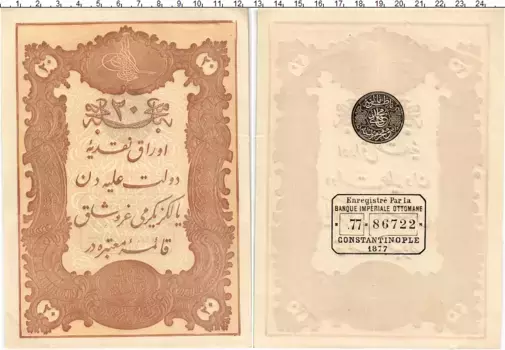 1. 2. 3. 4. 5. 6. 7. 8. 9. 10. 11. 12. 13. 14. 15. 16. 17. 18. 19. 20. 21. 22. 23. 24.
٢٠ ٢٠
٢٠
اوراق نقدیه
دولت علیه دن
یالکز یکرمی غروشلق
قائمه معتبره در
٢٠ ٢٠
Enregistré Par la
BANQUE IMPÉRIALE OTTOMANE
77 86722
CONSTANTINOPLE
1877